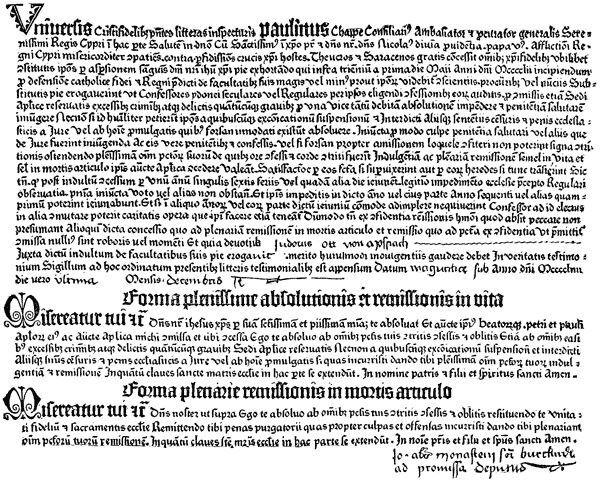 Vniversis Cristifidelibȝ pñtes litteras inspecturis Paulinus Chappe Consiliariꝰ Ambasiator ⁊ procurator generalis Sere-
nissimi Regis Cypri ī hac ꝑte Salutē in dnō Cū Sāctissimꝰ ī xp̄o pr̄ ⁊ dn̄s nr̄. dn̄s Nicolaꝰ diuīa ꝓuidētia. papa vꝰ. Afflictiōi Re-
gni Cypri misericorditer ꝯpatiēs. contra ꝑfidissimos crucis xp̄i hostes. Theucros ⁊ Saracenos gratis concessit omībȝ xp̄ifidelibȝ vbilibet
ꝯstitutis ipōs ꝑ aspersionem sāguīs dn̄i nr̄i ihū xp̄i pie exhortādo qui infra trienniū a prima die Maii Anni dn̄i Mcccclii incipiendum
ꝓ defensiōe catholice fidei ⁊ Regni ꝓdicti de facultatibȝ suis magis vel minꝰ prout ipōrȝ videbit ꝯsciētiis
pie erogauerint vt Confessores ydonei seculares vel Regulares per ipsos eligendi ꝯfessionibȝ eorȝ auditis. ꝓ ꝯmissis etiā Sedi
Aplice reservatis excessibȝ criminibȝ atqȝ delictis quātūcūqȝ grauibȝ ꝓ vna vice tātū debitā absolutionē impēdere ⁊ penitētiā salutarē
iniūgere Necnō si id hūiliter petierīt ipōs a quibuscūqȝ excoicationū suspensionū ⁊ Interdicti Aliisqȝ sentētiis cēsuris ⁊ penis ecclesia-
sticis a Jure vel ab hoīe ꝓmulgatis quibȝ forsan innodati existūt absoluere. Iniūcta ꝓ modo culpe penitētia salutari vel aliis que
de Jure fuerint iniūgenda Ac eis vere penitētibȝ ⁊ confessis. vel si forsan propter amissionem loquele ꝯfiteri non poterint signa ꝯtri-
tionis ostendendo plenissimā oīm pctōrȝ suorū de quibȝ ore ꝯfessi ⁊ corde ꝯtriti fuerīt Indulgētiā ac plenariā remissionē semel in vita et
semel in mortis articulo ipīs aūcte Aplica ꝯcedere valeāt. Satisfactōe ꝑ eos fcā. si supuixerint aut ꝑ eorȝ heredes si tunc trāsierīt Sic
tn̄. qꝫ post indultū ꝯcessum ꝑ vnū annū singulis sextis feriis vel quadā alia die ieiunēt. legitīo impedimēto ecclesie ꝓcepto Regulari
obseruātia. pn̄ia iniūcta voto vel alias non obstañ. Et ipīs impeditis in dicto āno vel eius parte Anno sequenti vel alias quam
primū poterint ieiunabunt. Et si ī aliquo Annorȝ vel eorȝ parte dictū ieiuniū cōmode adimplere nequiuerint Confessor ad id electus
in alia ꝯmutare poterit caritatis opera que ipī facere etiā teneāt Dūmodo tn̄ ex ꝯfidentia remissionis hmōi quod absit peccare non
presumant Alioqui dicta concessio quo ad plenariā remissionē in mortis articulo et remissio quo ad pctā ex ꝯfidētia vt ꝓmittitr̄
ꝯmissa nulliꝰ sint roboris vel momenti Et quia deuoti Judocus Ott von Apspach
Juxta dictū indultum de facultatibus suis pie erogauit merito hmōi indulgentiis gaudere debet In veritatis testimo-
nium Sigillum ad hoc ordinatum presentibȝ litteris testimonialibȝ est appensum Datum Maguntie sub Anno dn̄i Mcccclīiiii
die vero vltima Mensis decembris
Forma plenissime absolutionis et remissionis in vita
Misereatur tui ⁊c̄ Dn̄s nr̄ ihesus xp̄s ꝑ suā sctissimā et piissimā mīam te absoluat Et aūcte ipīꝰ Beatorūqȝ petri et pauli
Aplorȝ eiꝰ ac aūcte Aplica michi ꝯmissa et tibi ꝯcessa Ego te absoluo ab omībȝ pctīs tuis ꝯtritis ꝯfessis ⁊ oblitis Etiā ab omībȝ casi-
bȝ excessibȝ criminibȝ atqȝ delictis quātūcūqȝ grauibȝ Sedi Aplice reseruatis Necnon a quibuscūqȝ excoīcationū suspensionū et interdicti
Aliisqȝ sniīs cēsuris ⁊ penis ecclesiasticis a Jure vel ab hoīe ꝓmulgatis si quas incurristi dando tibi plenissimā oīm pctōrȝ tuorȝ indul-
gentiā ⁊ remissionē Inquātū claues sancte matris ecclie in hac ꝑte se extendūt. In nomine patris ⁊ filii et spiritus sancti Amen.
Forma plenarie remissionis in mortis articulo
Misereatur tui ⁊c̄ Dn̄s noster ut supra Ego te absoluo ab omībȝ pctīs tuis ꝯtritis ꝯfessis ⁊ oblitis restituendo te vnita-
ti fideliū ⁊ sacramentis ecclesie Remittendo tibi penas purgatorii quas propter culpas et offensas incurristi dando tibi plenariam
oīm pctōrȝ tuorū remissionē. Inquātū claues scē mr̄is ecclie in hac parte se extendūt. In noīe pr̄is ⁊ filii et spūs sancti Amen.
Jo. abbas monasterii sci Burckardi
ad premissa deputatus